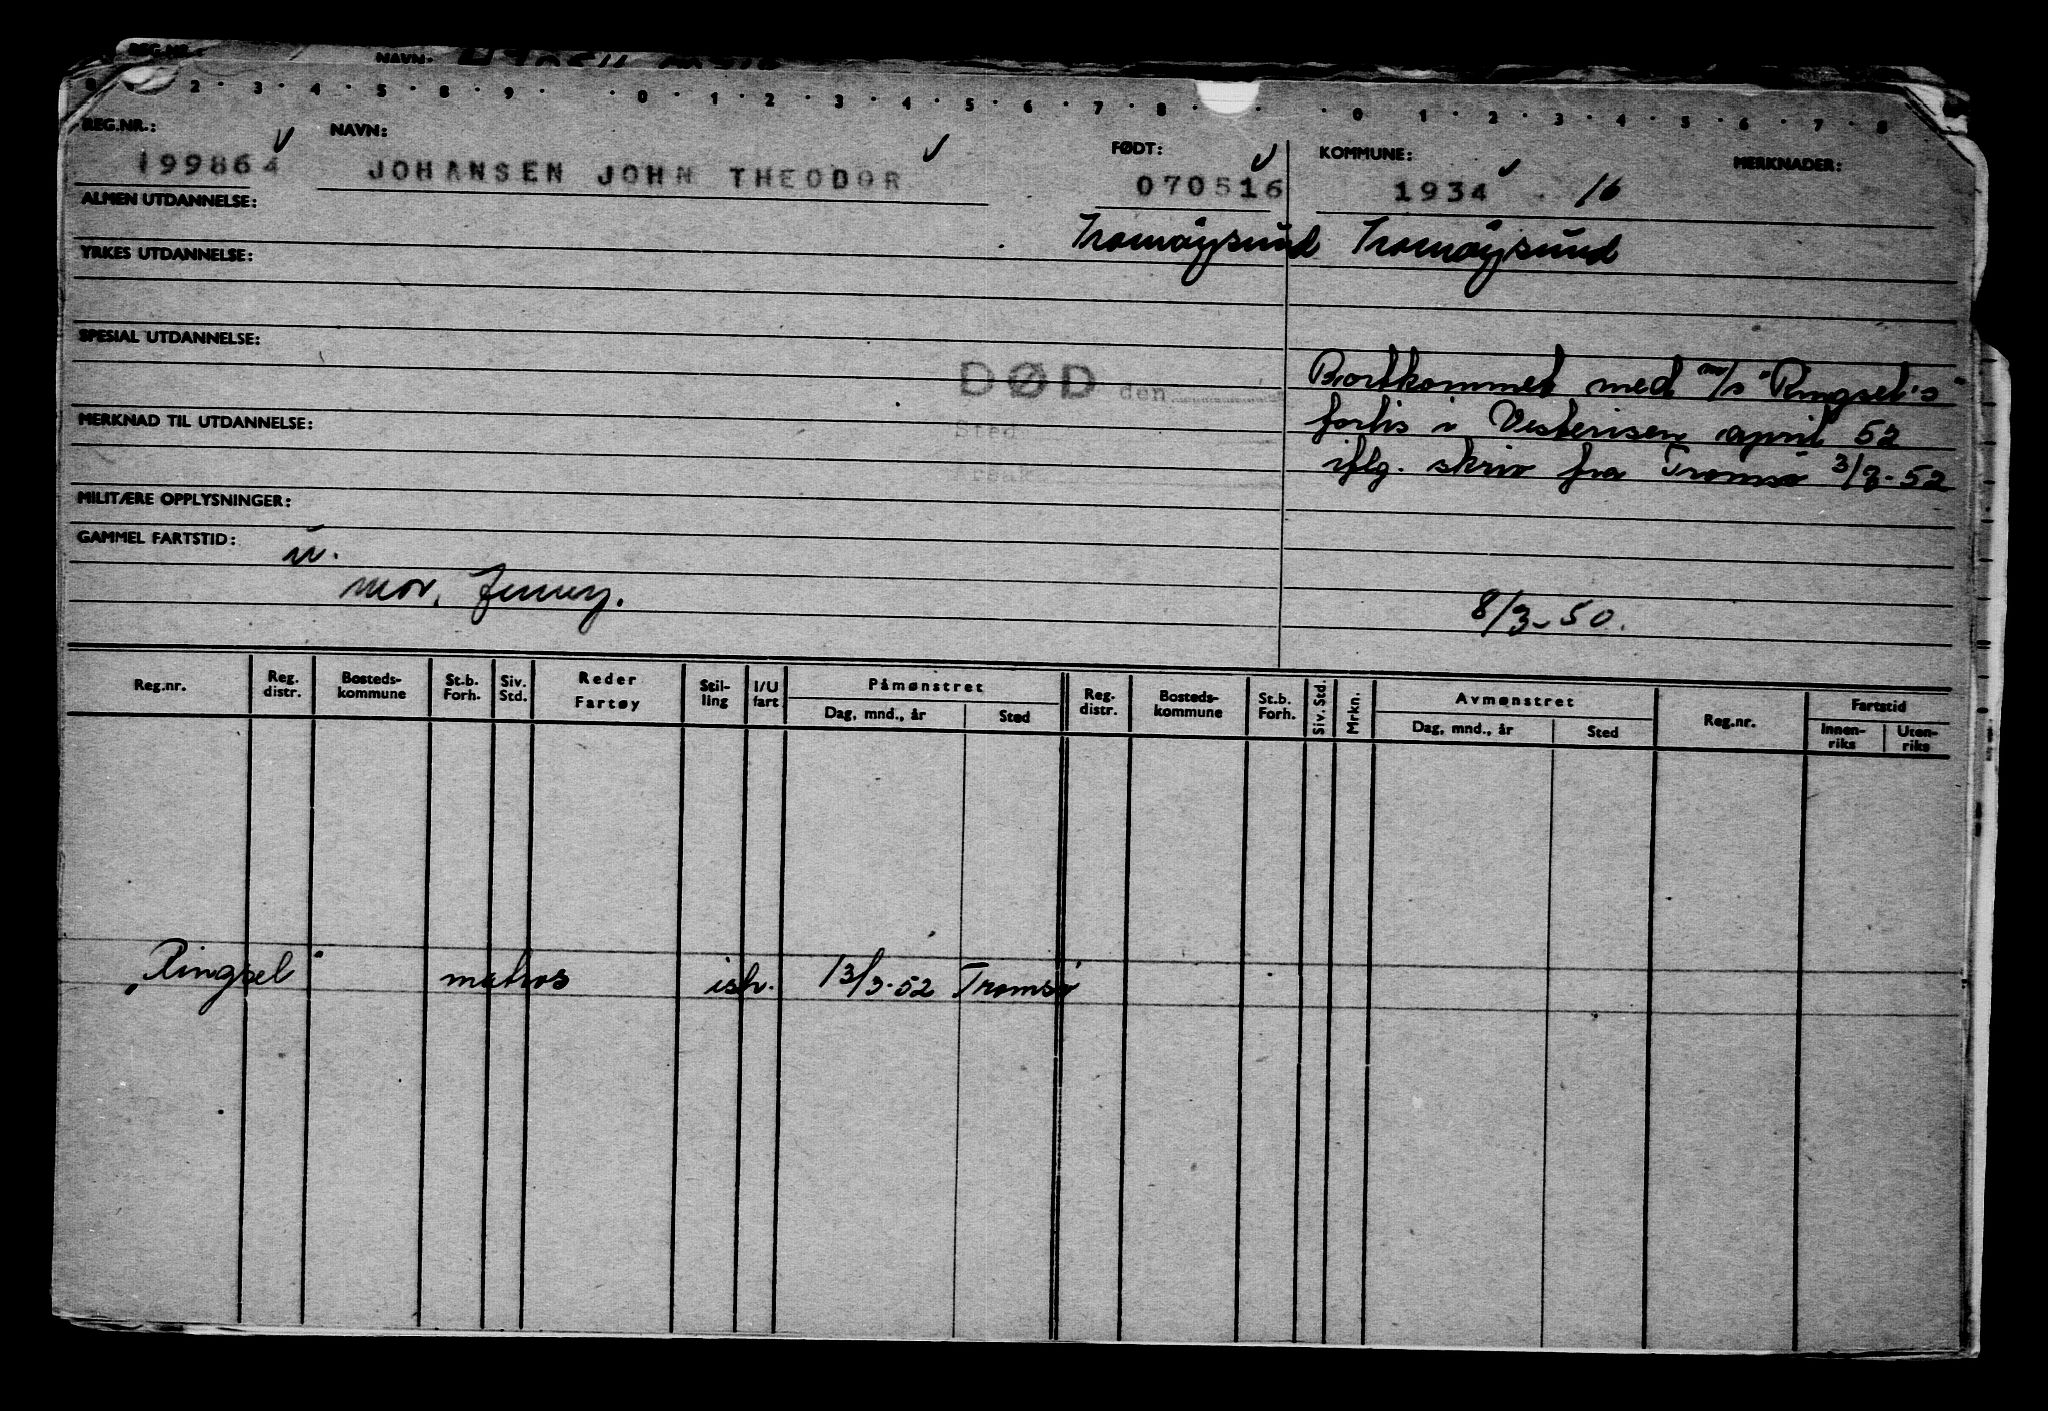 REG.NR.: NAVN:
2 3 4 5 8 9 0 1 2 3 4 5 6 7 8 0 1 2 3 4 5 6 7 8
REG.NR.: NAVN: FØDT: KOMMUNE: MERKNADER:
199864 JOHANSEN JOHN THEODOR 070516 1934 16
ALMEN UTDANNELSE:
Tromøysund Tromøysund
YRKES UTDANNELSE:
SPESIAL UTDANNELSE:
DØD den
Bortkommet med m/s "Ringsel's"
Sted
MERKNAD TIL UTDANNELSE:
forlis i Vesterisen april 52
iflg. skriv fra Tromsø 3/7-52
MILITÆRE OPPLYSNINGER:
GAMMEL FARTSTID:
u.
mor, Jenny. 8/3-50.
Reg.nr. Reg. distr. Bosteds-kommune St.b. Forh. Siv. Std. Reder Fartøy Stil-ling I/U fart Påmønstret Dag, mnd., år Sted Reg. distr. Bosteds-kommune St.b. Forh. Siv. Std. Mrkn. Avmønstret Dag, mnd., år Sted Reg.nr. Fartstid Innen-riks Uten-riks
"Ringsel" matros ish. 13/3-52 Tromsø